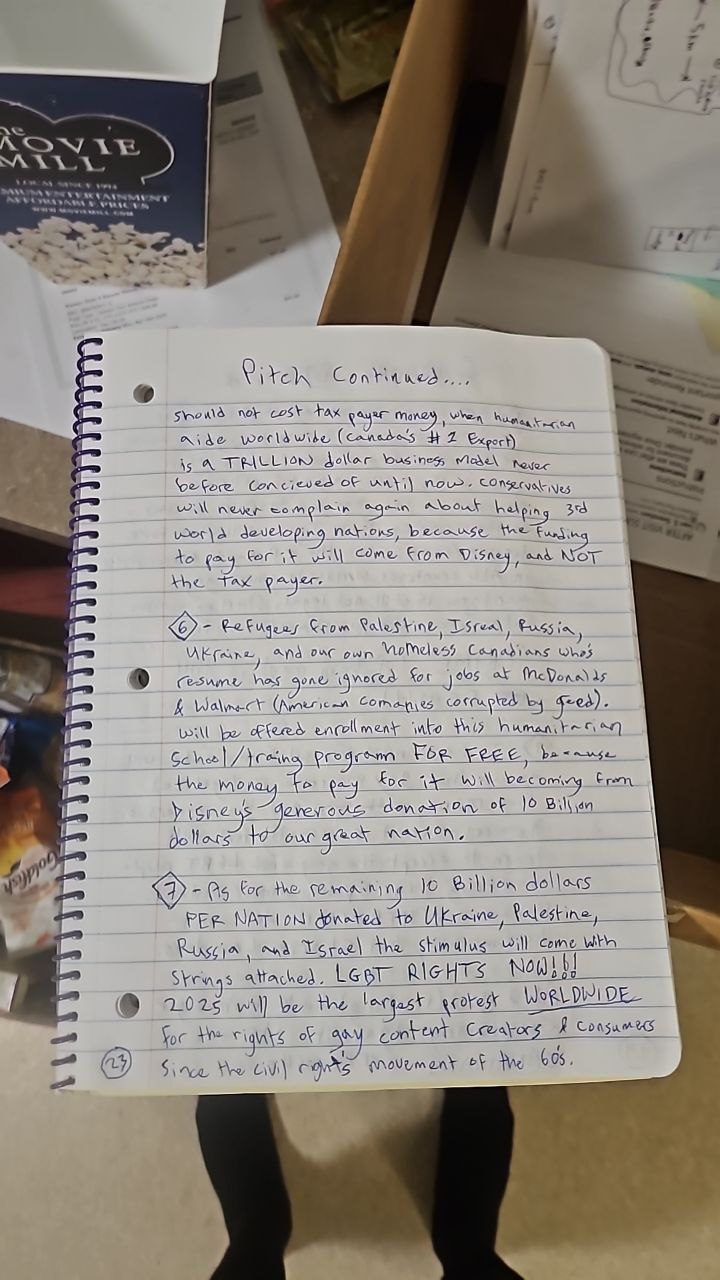 MOVIE
MILL
LOCAL SINCE 1994
ENTERTAINMENT
AFFORDABLE PRICES
Pitch Continued....
should not cost tax payer money, when humanitarian
aide worldwide (Canada's #1 Export)
is a TRILLION dollar business model never
before concieved of until now. conservatives
will never complain again about helping 3rd
world developing nations, because the funding
to pay for it will come from Disney, and NOT
the tax payer.
6 - Refugees from Palestine, Isreal, Russia,
Ukraine, and our own homeless Canadians who's
resume has gone ignored for jobs at McDonalds
& Walmart (American comanies corrupted by geed).
will be offered enrollment into this humanitarian
School/traing program FOR FREE, because
the money to pay for it will becoming from
Disney's generous donation of 10 Billion
dollars to our great nation.
7 - As for the remaining 10 Billion dollars
PER NATION donated to Ukraine, Palestine,
Russia, and Israel the stimulus will come with
Strings attached. LGBT RIGHTS NOW!!!
2025 will be the largest protest WORLDWIDE
for the rights of gay content creators & consumers
23 Since the civil rights movement of the 60's.
Goldfish